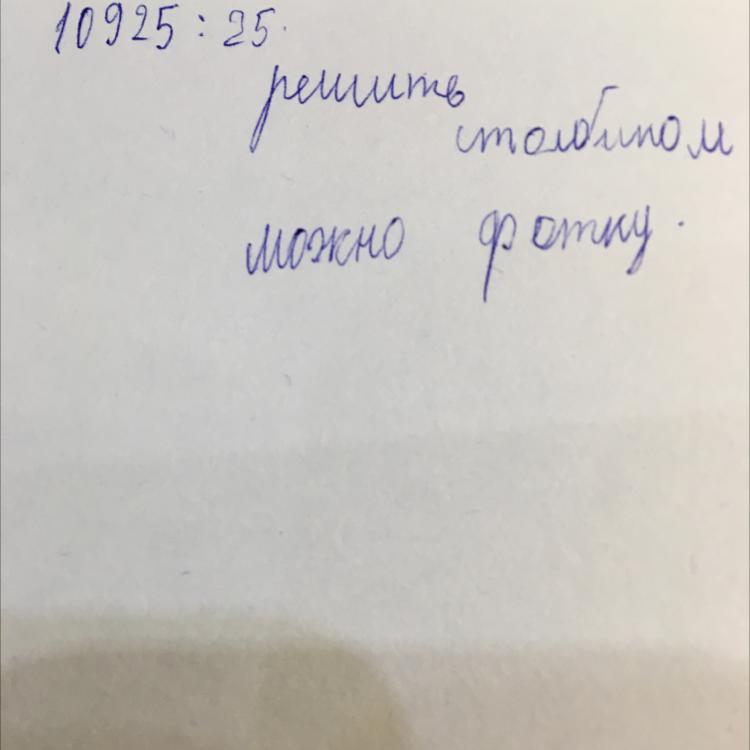 10925 : 25.
решить
столбиком
можно фотку.